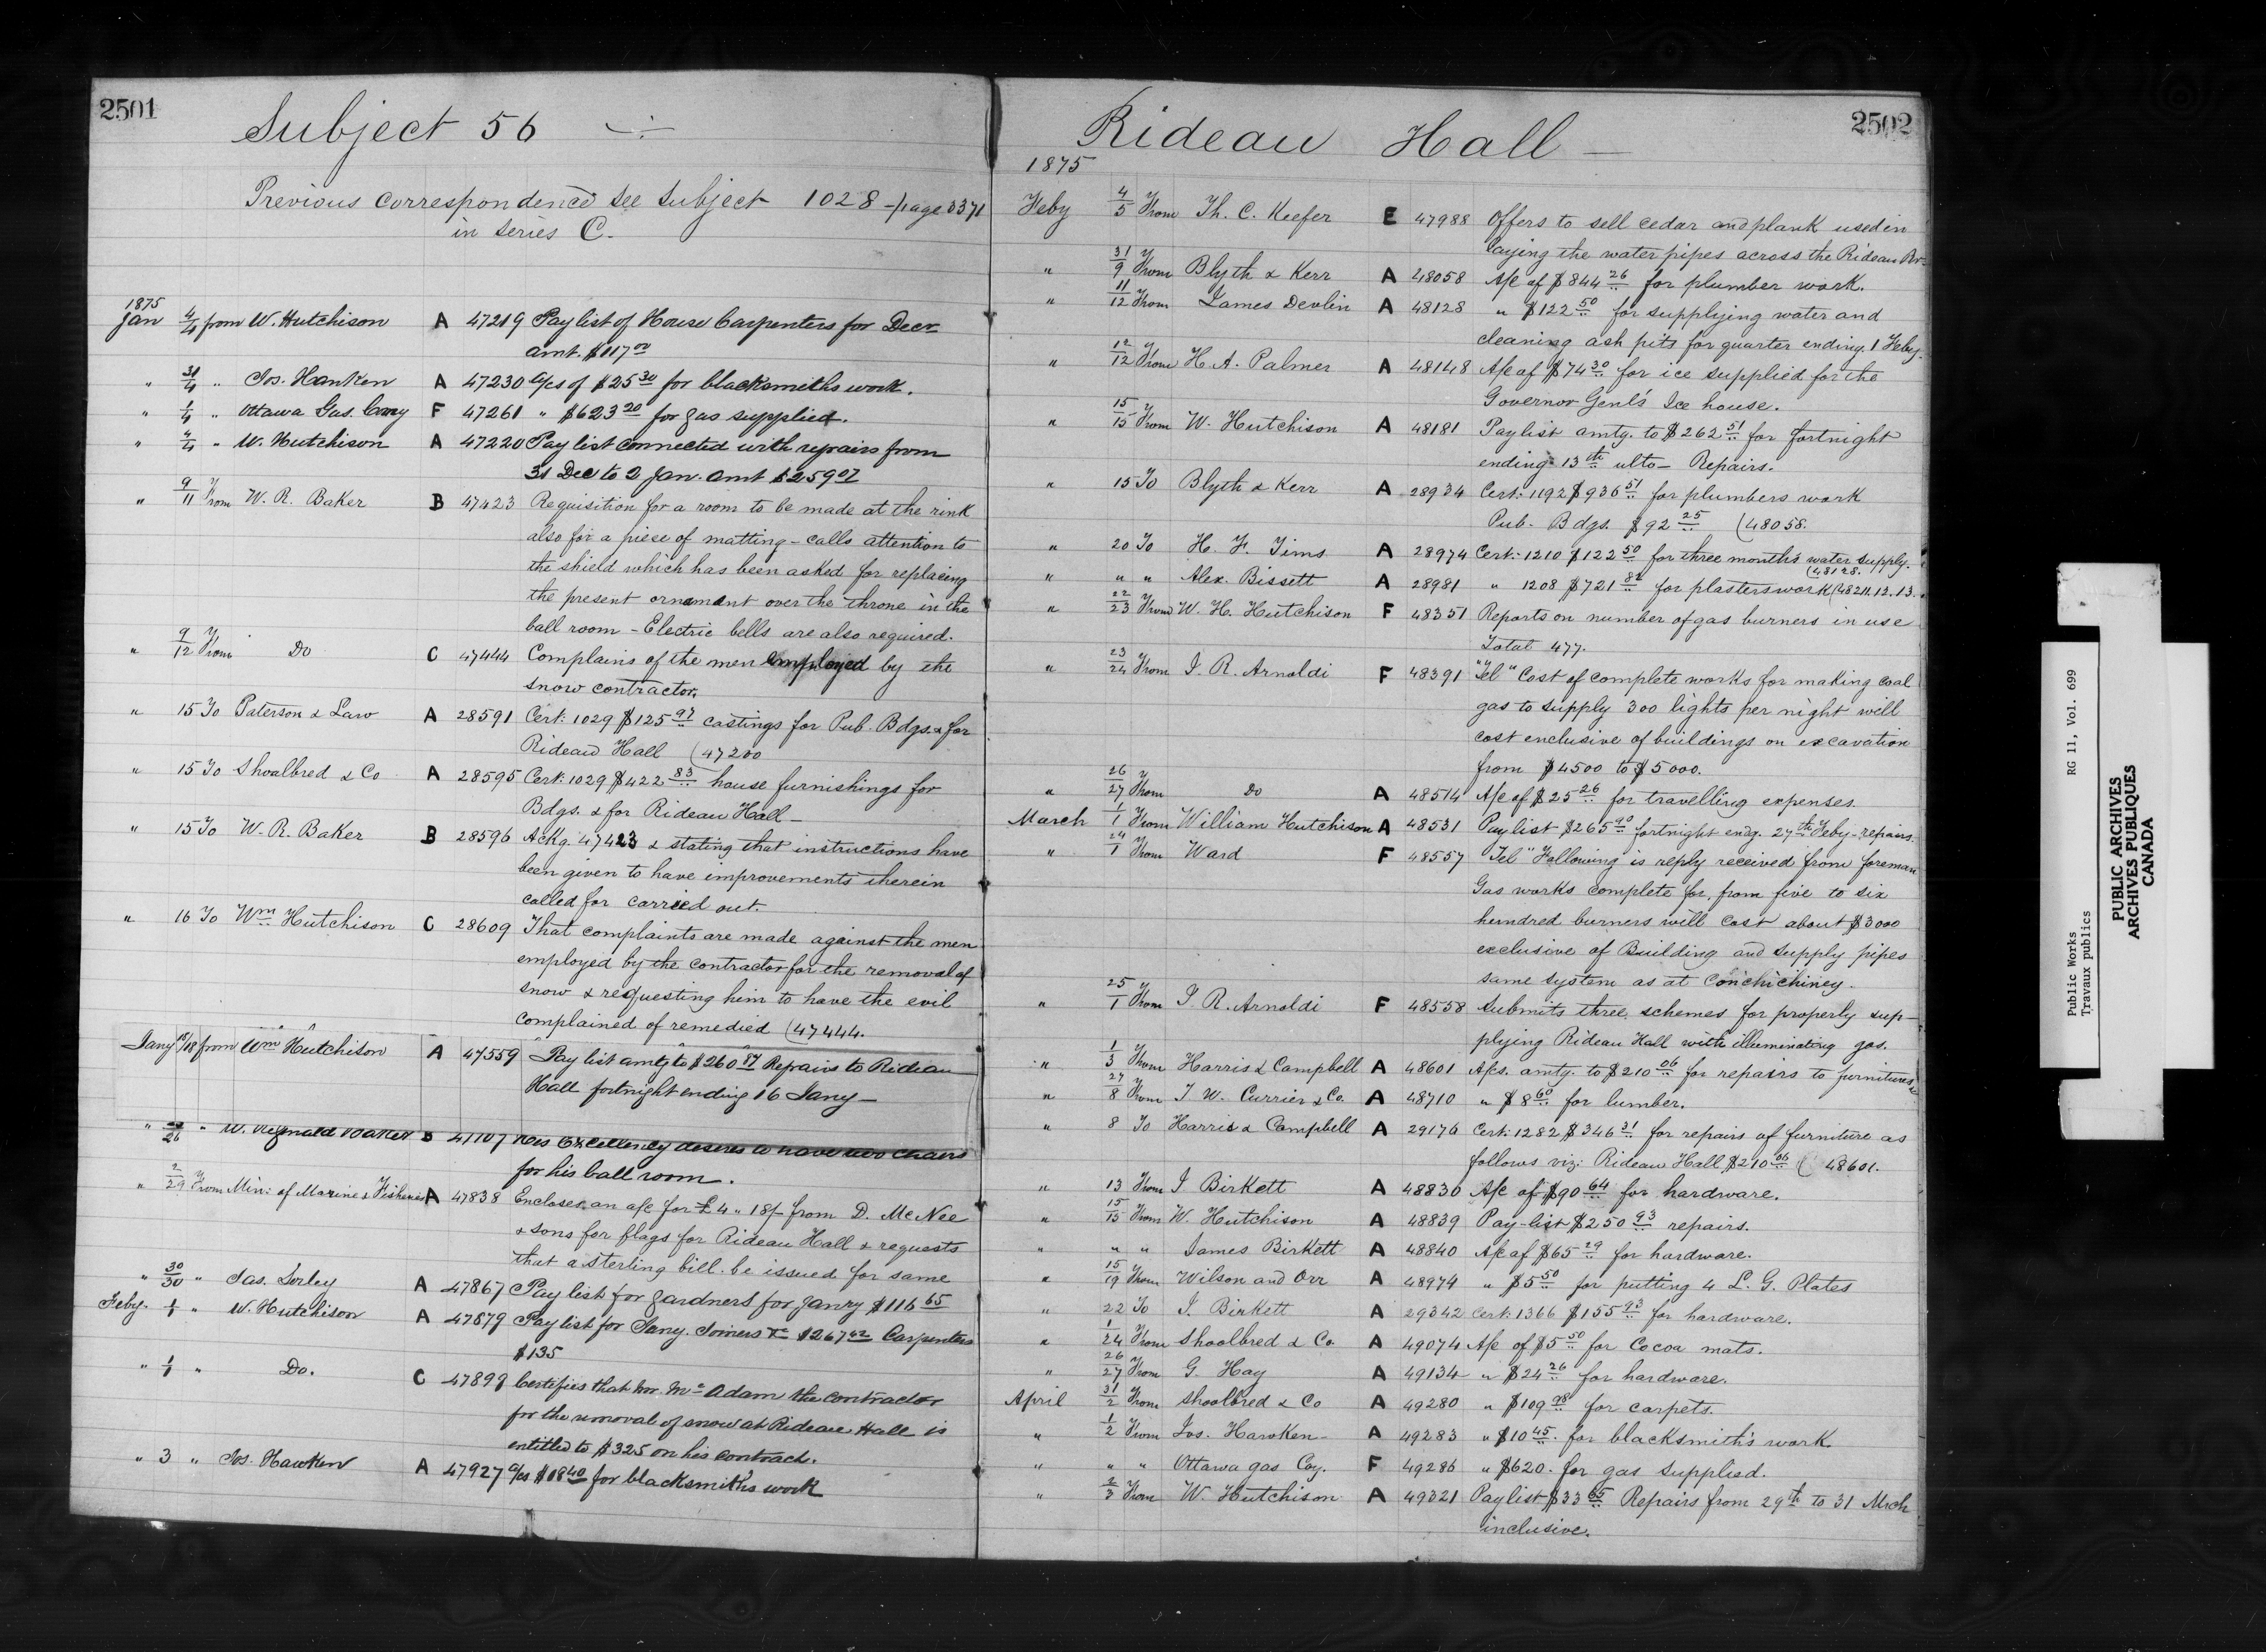 2501
Subject 56
Previous correspondence see subject 1028 - page 3371
in series C.
1875
Jan 4/4 from W. Hutchison A 47219 Pay list of House Carpenters for Decr
amt. $117 00
" 31/4 " Jos. Hawken A 47230 a/cs of $25 30 for blacksmiths work.
" 1/4 " Ottawa Gas. Comy F 47261 " $623 20 for gas supplied.
" 4/4 " W. Hutchison A 47220 Pay list connected with repairs from
31 Dec to 2 Jan. amt $259 07
" 9/11 From W. R. Baker B 47423 Requisition for a room to be made at the rink
also for a piese of matting - calls attention to
the shield which has been asked for replacing
the present ornament over the throne in the
ball room - Electric bells are also required.
" 9/12 From Do C 47444 Complains of the men employed by the
snow contractor.
" 15 To Paterson & Law A 28591 Cert: 1029 $125 97 castings for Pub. Bdgs. & for
Rideau Hall (47200
" 15 To Shoalbred & Co A 28595 Cert: 1029 $422 83 house furnishings for
Bdgs. & for Rideau Hall -
" 15 To W. R. Baker B 28596 Ackg. 47423 & stating that instructions have
been given to have improvements therein
called for carried out.
" 16 To Wm Hutchison C 28609 That complaints are made against the men
employed by the contractor for the removal of
snow & requesting him to have the evil
complained of remedied (47444.
Jany 18/18 from Wm Hutchison A 47559 Pay list amtg to $260 87 Repairs to Rideau
Hall fortnight ending 16 Jany -
" 26 " W. Reginald Baker B 47707 His Excellency desires to have two chairs
for his ball room.
" 2/29 From Min: of Marine & Fisheries A 47838 Encloses an a/c for £4 " 18/- from D. McNee
& sons for flags for Rideau Hall & requests
that a sterling bill be issued for same
" 30/30 " Jas. Sorley A 47867 Pay list for gardners for Janry $116 65
Feby. 1/1 " W. Hutchison A 47879 Pay list for Jany. Joiners &c $267 42 Carpenters
$135
" 1/1 " Do. C 47898 Certifies that Mr. McAdam the contractor
for the removal of snow at Rideau Hall is
entitled to $325 on his contract.
" 3 " Jos. Hawken A 47927 a/cs $18 40 for blacksmith's work
2502
Rideau Hall -
1875
Feby 4/5 From Th. C. Keefer E 47988 Offers to sell cedar and plank used in
laying the water pipes across the Rideau Rr-
" 31/9 From Blyth & Kerr A 48058 A/c of $844 26 for plumber work.
" 11/12 From James Devlin A 48128 " $122 50 for supplying water and
cleaning ash pits for quarter ending 1 Feby.
" 12/12 From H. A. Palmer A 48148 A/c of $74 30 for ice supplied for the
Governor Genl's Ice house.
" 15/15 From W. Hutchison A 48181 Pay list amtg. to $262 51 for fortnight
ending 13th ulto - Repairs.
" 15 To Blyth & Kerr A 28934 Cert: 1192 $936 51 for plumbers work
Pub. Bdgs. $92 25 (48058.
" 20 To H. F. Tims A 28974 Cert: 1210 $122 50 for three months water supply.
(48128.
" " " Alex. Bissett A 28981 " 1208 $721 82 for plasters work (48211.12.13.
" 22/23 From W. H. Hutchison F 48351 Reports on number of gas burners in use
Total 477.
" 23/24 From J. R. Arnoldi F 48391 "Tel" Cost of complete works for making coal
gas to supply 300 lights per night will
cost exclusive of buildings on excavation
from $4500 to $5000.
" 26/27 From Do A 48514 A/c of $25 26 for travelling expenses.
March 1/1 From William Hutchison A 48531 Pay list $265 90 fortnight endg. 27th Feby - repairs.
" 24/1 From Ward F 48557 "Tel" Following is reply received from foreman
Gas works complete for, from five to six
hundred burners will cost about $3000
exclusive of Building and supply pipes
same system as at Conchichiney.
" 25/1 From J. R. Arnoldi F 48558 Submits three schemes for properly sup-
plying Rideau Hall with illuminating gas.
" 1/3 From Harris & Campbell A 48601 A/cs. amtg. to $210 06 for repairs to furniture &c
" 27/8 From J. W. Currier & Co. A 48710 " $8 60 for lumber.
" 8 To Harris & Campbell A 29176 Cert: 1282 $346 31 for repairs of furniture as
follows viz: Rideau Hall $210 06 (48601.
" 13 From J Birkett A 48830 A/c of $90 64 for hardware.
" 15/15 From W. Hutchison A 48839 Pay-list $250 93 repairs.
" " " James Birkett A 48840 A/c of $65 29 for hardware.
" 15/19 From Wilson and Orr A 48974 " $5 50 for putting 4 L. G. Plates
" 22 To J. Birkett A 29342 Cert: 1366 $155 93 for hardware.
" 1/24 From Shoolbred & Co A 49074 A/c of $5 50 for Cocoa mats.
" 26/27 From G. Hay A 49134 " $24 26 for hardware.
April 31/2 From Shoolbred & Co A 49280 " $109 98 for carpets.
" 1/2 From Jos. Hawken - A 49283 " $10 45 for blacksmith's work.
" " " Ottawa gas Coy. F 49286 " $620. for gas supplied.
" 2/3 From W. Hutchison A 49321 Pay list $33 65 Repairs from 29th to 31 Mrch
inclusive.
Public Works RG 11, Vol. 699
Travaux publics
PUBLIC ARCHIVES
ARCHIVES PUBLIQUES
CANADA